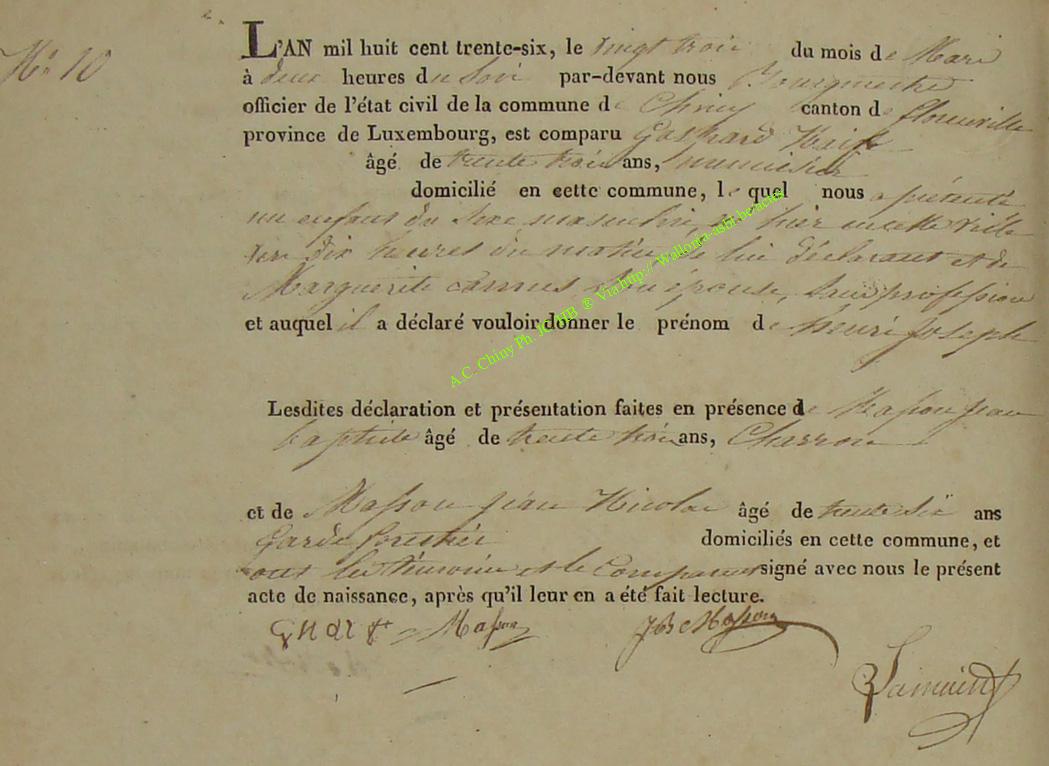 No 10
L'AN mil huit cent trente-six, le vingt trois du mois de Mars
à deux heures du Soir par-devant nous Bourgmestre
officier de l'état civil de la commune de Chiny canton de florenville
province de Luxembourg, est comparu Gaspard
âgé de trente trois ans, menuisier
domicilié en cette commune, le quel nous a présenté
un enfant du sexe masculin, né hier en cette ville
vers dix heures du matin de lui déclarant et de
Marguerite camus son épouse, Sans profession
et auquel il a déclaré vouloir donner le prénom de henri joseph
Lesdites déclaration et présentation faites en présence de Masson jean
baptiste âgé de trente trois ans, Charron
et de Masson jean Nicolas âgé de trente six ans
Garde forestier domiciliés en cette commune, et
ont les témoins et le Comparant signé avec nous le présent
acte de naissance, après qu'il leur en a été fait lecture.
Masson JB Masson
A.C. Chiny Ph. JCMJB ® Via http:// Wallonia-asbl.be/actes